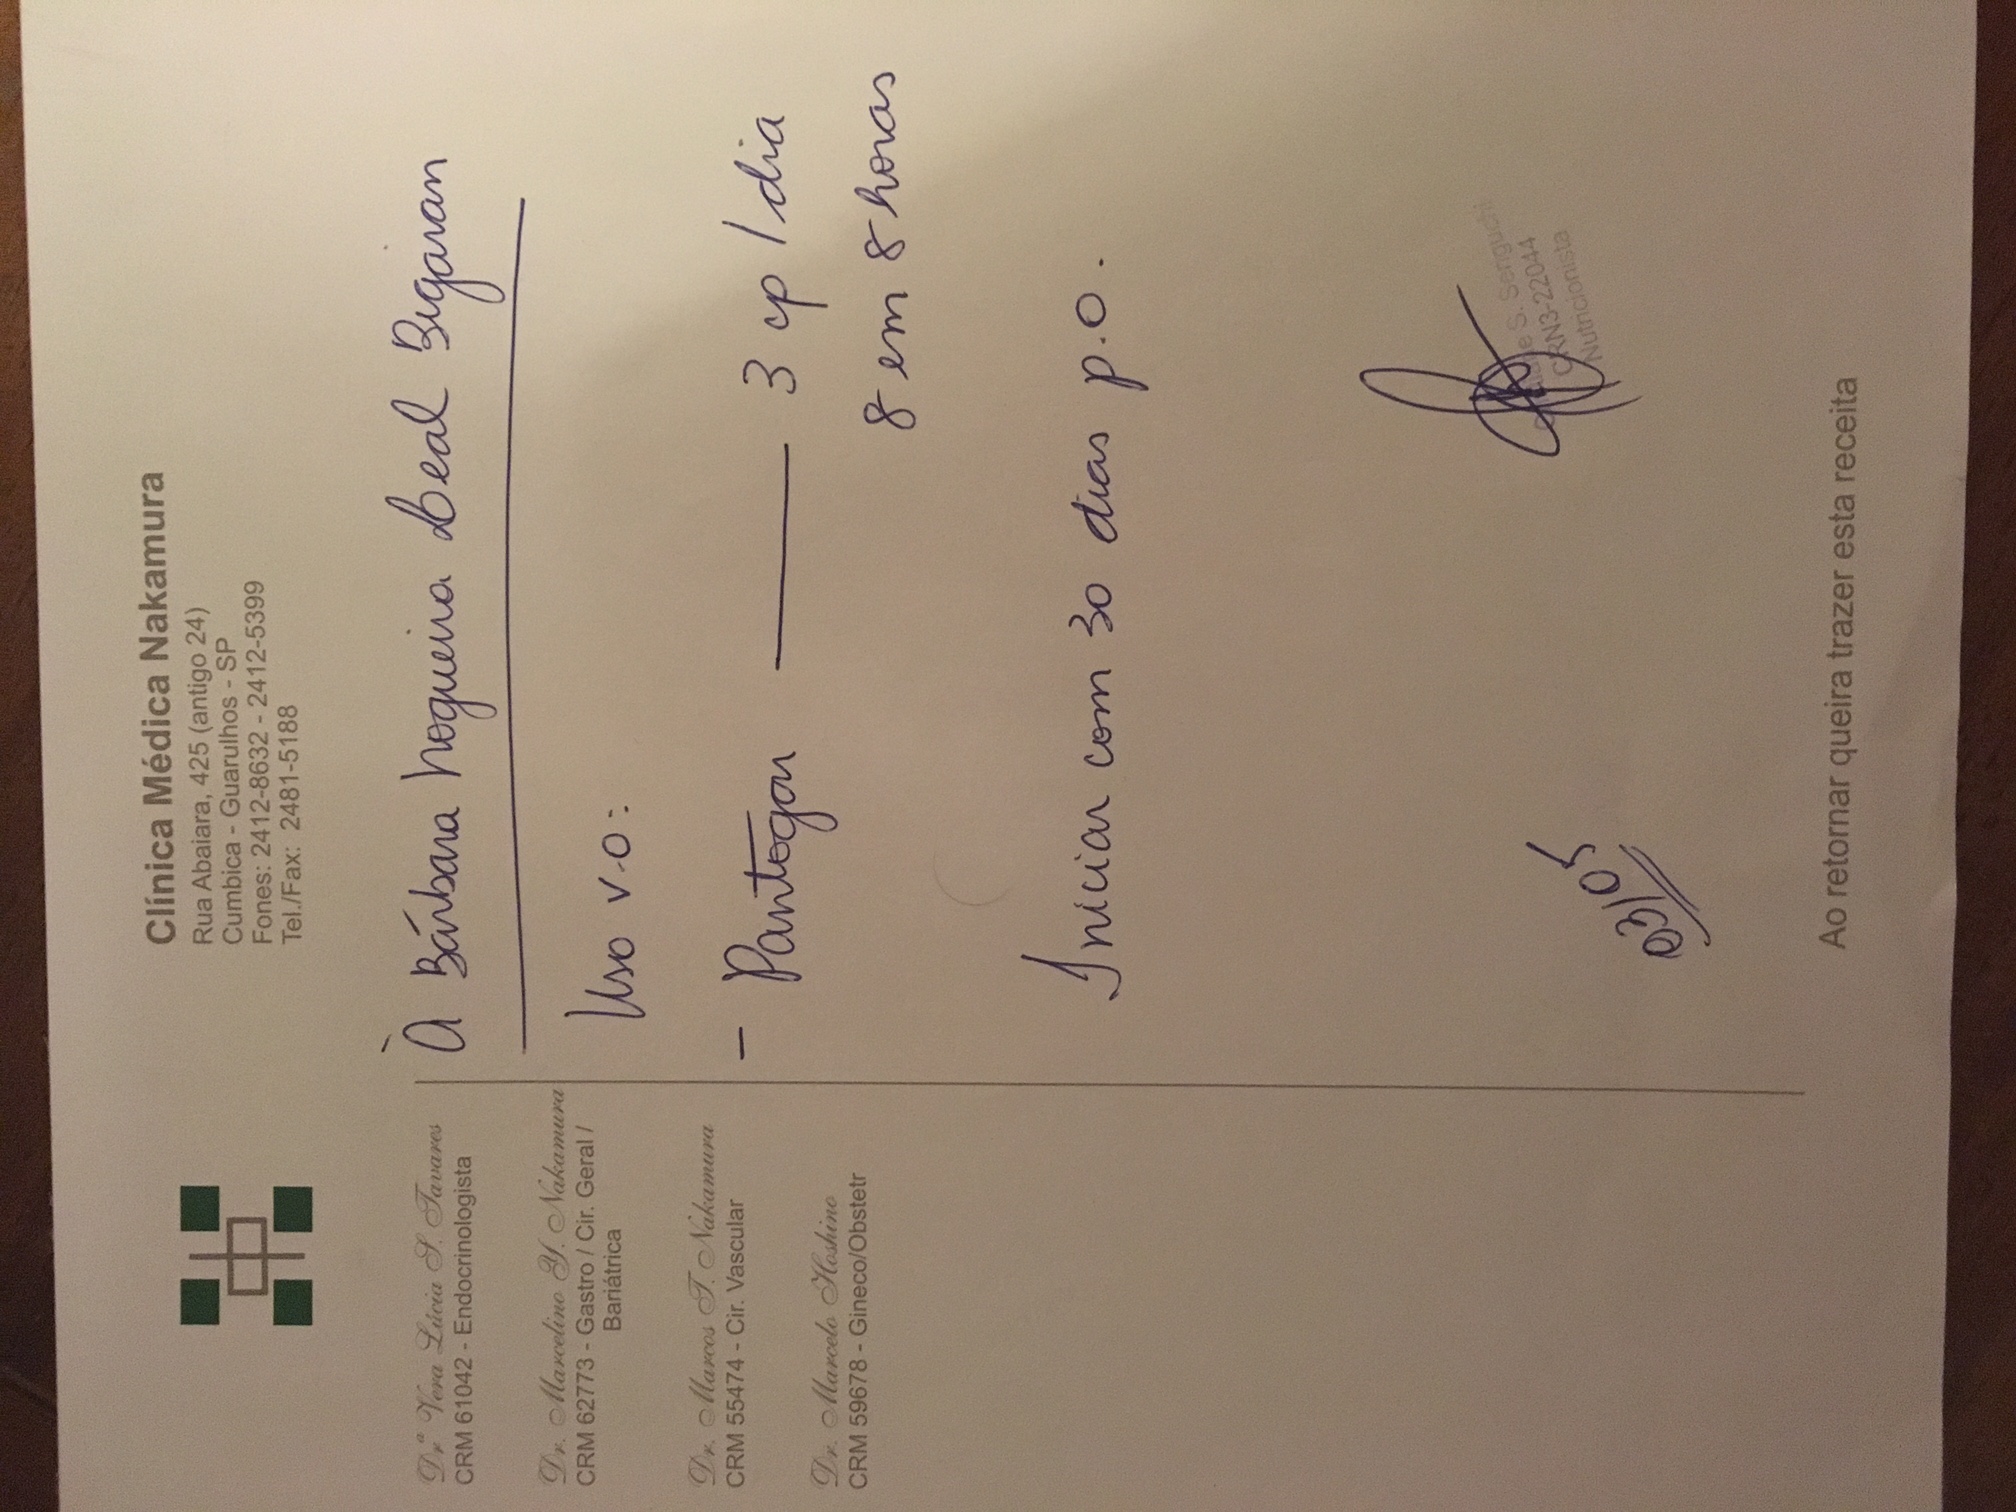 Clínica Médica Nakamura
Rua Abaiara, 425 (antigo 24)
Cumbica - Guarulhos - SP
Fones: 2412-8632 - 2412-5399
Tel./Fax: 2481-5188
Drª Vera Lúcia S. Tavares
CRM 61042 - Endocrinologista
Dr. Marcelino Y. Nakamura
CRM 62773 - Gastro / Cir. Geral /
Bariátrica
Dr. Marcos T. Nakamura
CRM 55474 - Cir. Vascular
Dr. Marcelo Hoshino
CRM 59678 - Gineco/Obstetr
À Bárbara Nogueira Leal Bigaran
Uso v.o:
- Pantogar 3 cp / dia
8 em 8 horas
Iniciar com 30 dias p.o.
03/05
S. Senguchi
CRN3-22044
Nutricionista
Ao retornar queira trazer esta receita